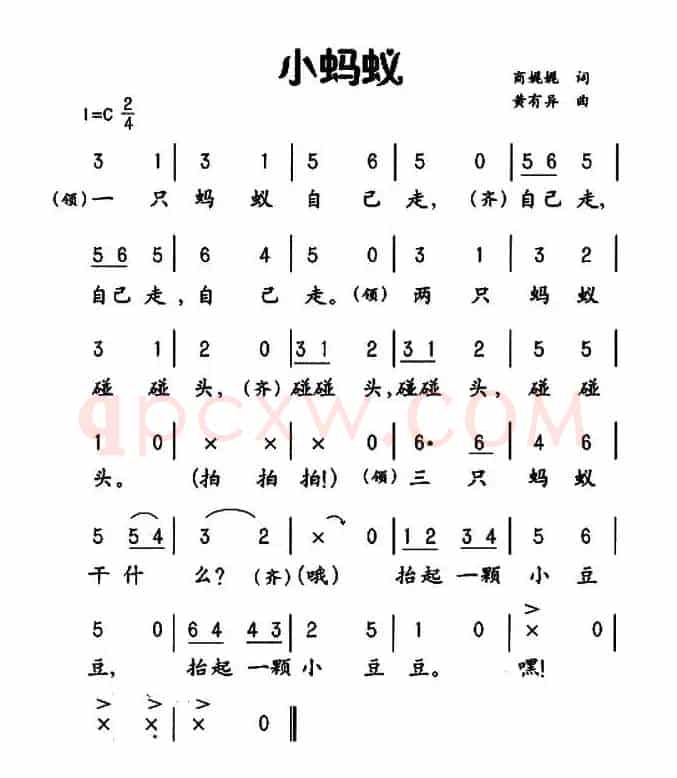 小蚂蚁
商娓娓 词
黄有异 曲
1=C 2/4
3 1 | 3 1 | 5 6 | 5 0 | 5 6 5 |
(领)一 只 蚂 蚁 自 己 走, (齐)自己走,
5 6 5 | 6 4 | 5 0 | 3 1 | 3 2 |
自己 走, 自 己 走。(领) 两 只 蚂 蚁
3 1 | 2 0 | 3 1 2 | 3 1 2 | 5 5 |
碰 碰 头, (齐)碰碰 头, 碰碰 头, 碰 碰
qpcxw.com
1 0 | × × | × 0 | 6· 6 | 4 6 |
头。 (拍 拍 拍!) (领)三 只 蚂 蚁
5 5 4 | 3 2 | × 0 | 1 2 3 4 | 5 6 |
干 什 么? (齐)(哦) 抬起 一颗 小 豆
5 0 | 6 4 4 3 | 2 5 | 1 0 | × 0 |
豆, 抬起 一颗 小 豆 豆。 嘿!
× × | × 0 ‖